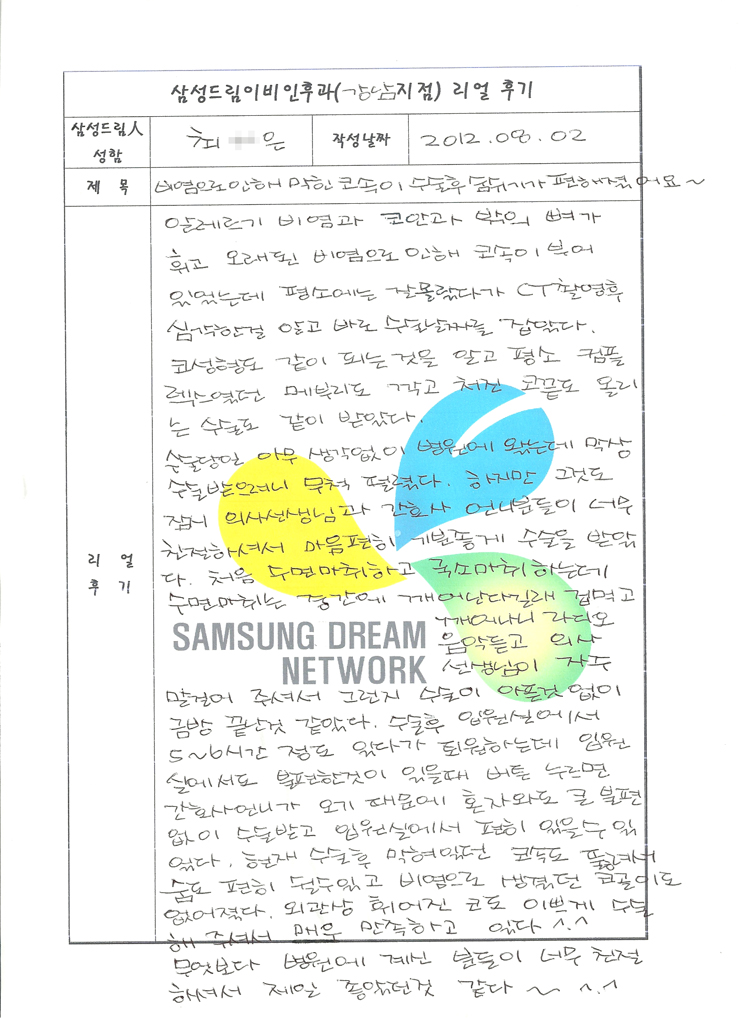 삼성드림이비인후과(강남지점) 리얼 후기
삼성드림人 성함 최 은 작성날짜 2012.08.02
제 목 비염으로인해 막힌 코속이 수술후 숨쉬기가 편해졌어요~
알레르기 비염과 코안과 밖의 뼈가
휘고 오래된 비염으로 인해 코속이 부어
있었는데 평소에는 잘몰랐다가 CT촬영후
심각한걸 알고 바로 수술날짜를 잡았다.
코성형도 같이 되는것을 알고 평소 컴플
렉스였던 메부리도 깍고 처진 코끝도 올리
는 수술도 같이 받았다.
수술당일 아무 생각없이 병원에 왔는데 막상
수술받으려니 무척 떨렸다. 하지만 그것도
잠시 의사선생님과 간호사 언니분들이 너무
친절하셔서 마음편히 기분좋게 수술을 받았
다. 처음 수면마취하고 국소마취하는데
수면마취는 중간에 깨어난다길래 겁먹고
깨어나니 라디오
음악듣고 의사
선생님이 자주
말걸어 주셔서 그런지 수술이 아픈것 없이
금방 끝난것 같았다. 수술후 입원실에서
5~6시간 정도 있다가 퇴원하는데 입원
실에서도 불편한것이 있을때 버튼 누르면
간호사언니가 오기 때문에 혼자와도 큰 불편
없이 수술받고 입원실에서 편히 있을수 있
었다. 현재 수술후 막혀있던 코속도 뚫려서
숨도 편히 쉴수있고 비염으로 생겼던 코골이도
없어졌다. 외관상 휘어진 코도 이쁘게 수술
해 주셔서 매우 만족하고 있다 ^.^
무엇보다 병원에 계신 분들이 너무 친절
하셔서 제일 좋았던것 같다 ~ ^.^
리 얼
후 기
SAMSUNG DREAM
NETWORK